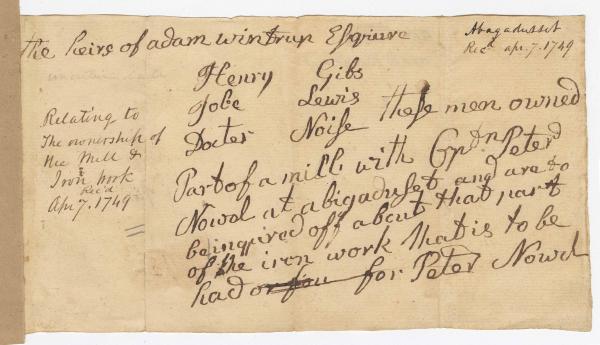 the heirs of adam wintrup Esqiure
Abagadusset
Rec'd apr. 7. 1749
Henry Gibs
Jobe Lewis
Docter Noise these men owned
Part of a mill with Cptn Peter
Nowel at abigaduset and are to
be inqired off about that part
of the iron work that is to be
had or for Peter Nowel
Relating to
The ownership of
the Mill &
Iron work
Rec'd
Apr 7. 1749